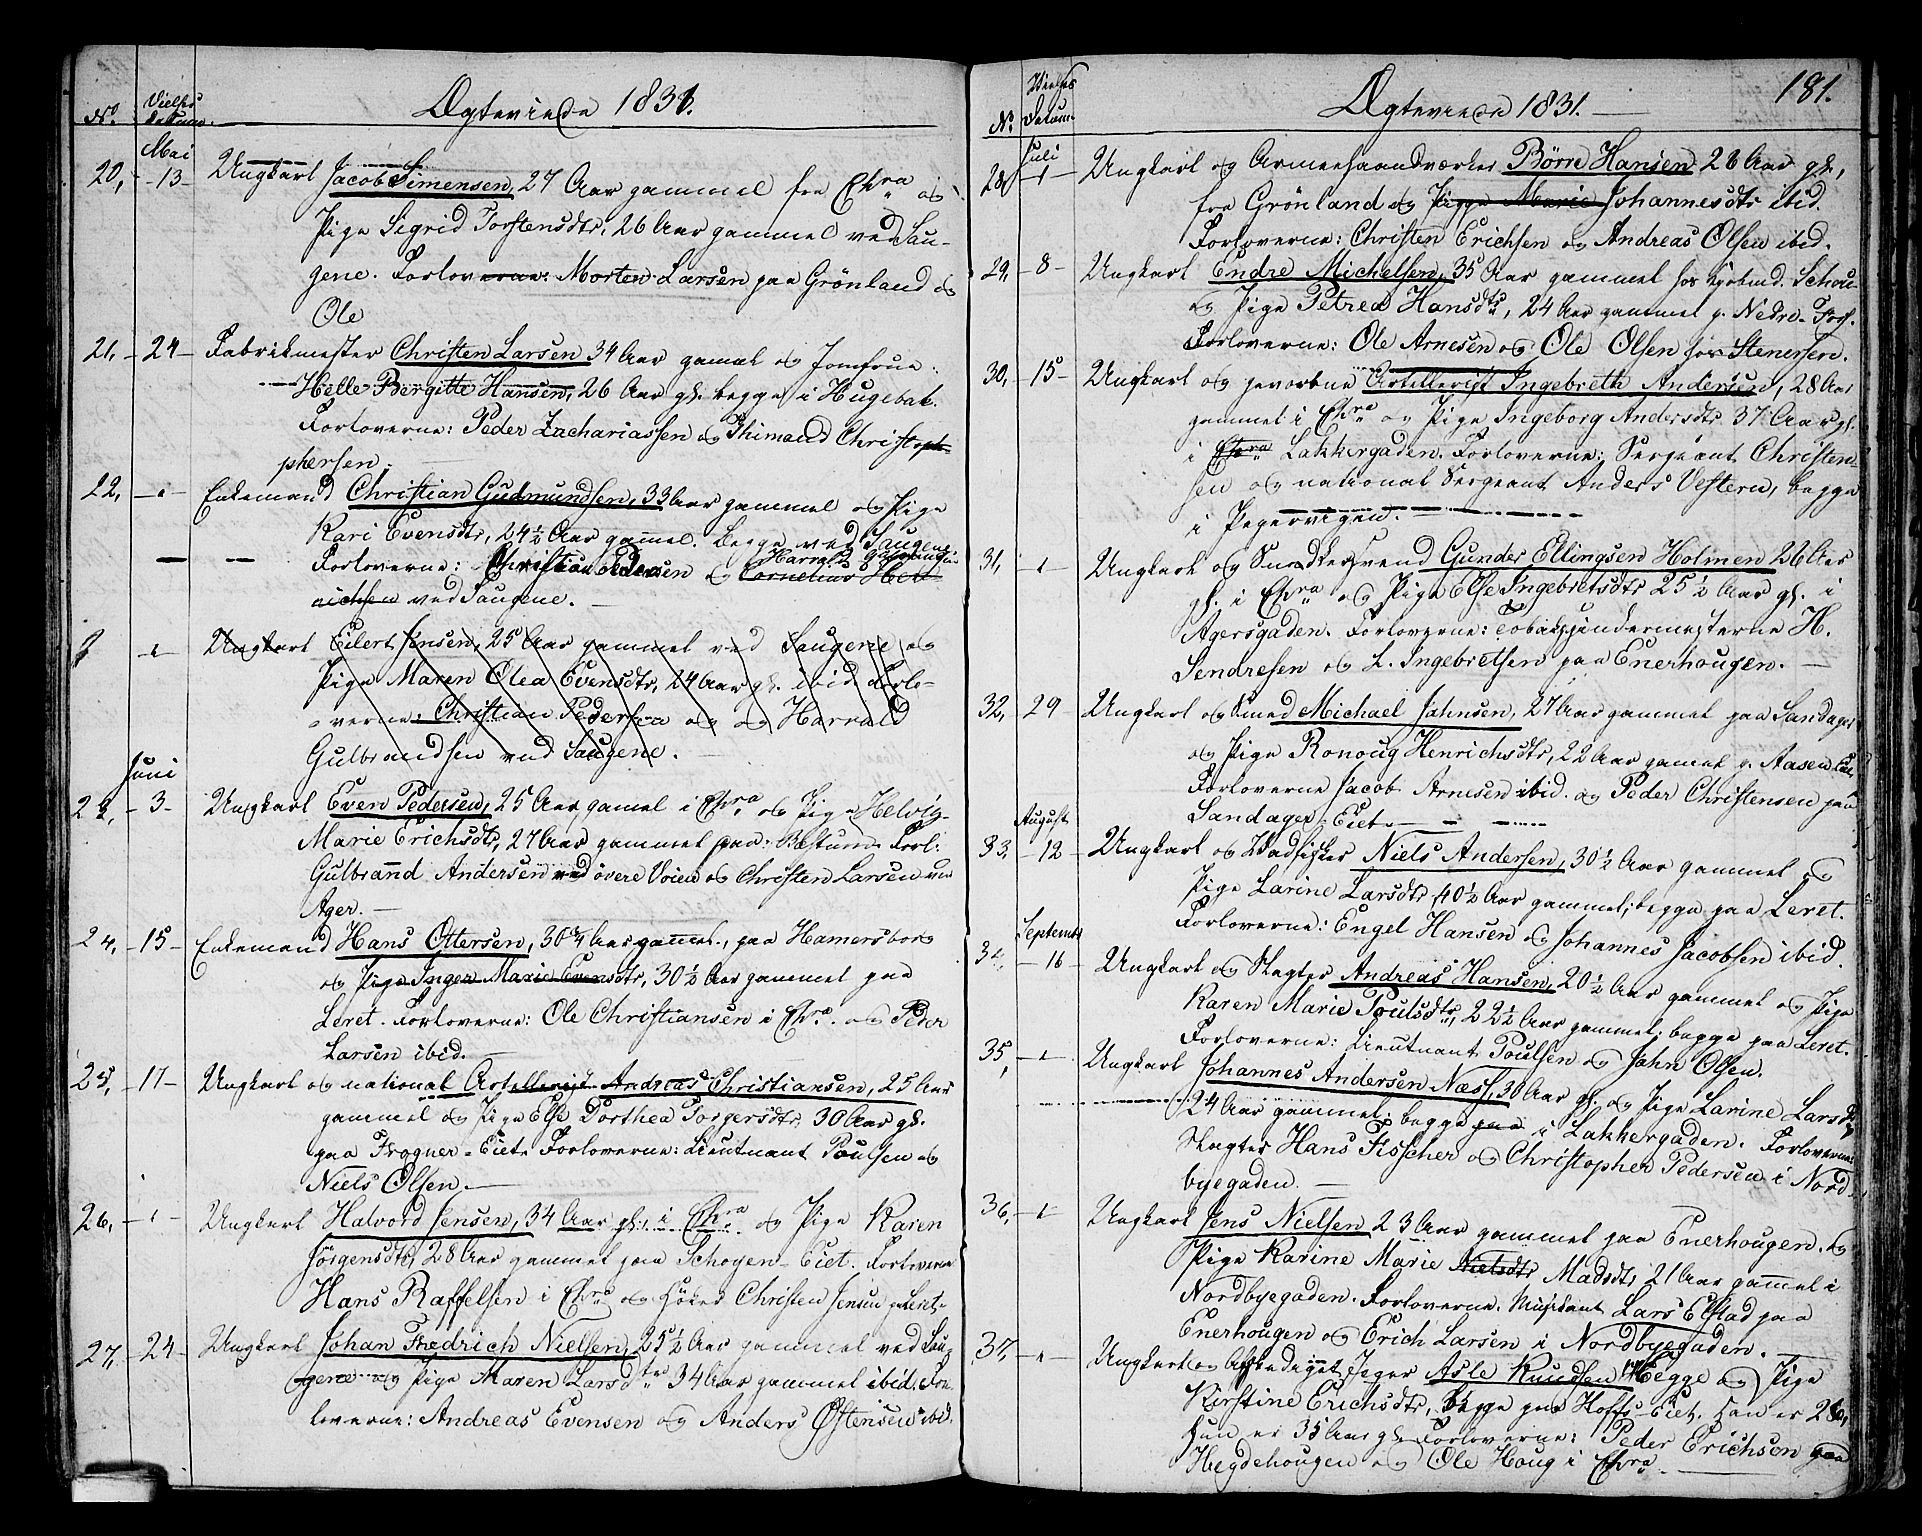 Ægteviede 1831.
No. Vielses Datum.
Mai
20, -13- Ungkarl Jacob Simensen, 27 Aar gammel fra Chra og
Pige Sigrid Torstensdtr, 26 Aar gammel ved Sau-
gene. Forloverne: Morten Larsen paa Grönland og
Ole
21, -24- Fabrikmester Christen Larsen 34 Aar gamel og Jomfrue
Helle Bergitte Hansen, 26 Aar gl. begge i Hugebak.
Forloverne: Peder Zachariassen og Thimand Christoph-
phersen.
22, -"- Enkemand Christian Gudmundsen, 33 Aar gammel og Pige
Kari Evensdtr, 24½ Aar gammel. Begge ved Saugene
Forloverne: Christian Pedersen og Cornelius Hen- Harrald
richsen ved Saugene.
-"- Ungkarl Eilert Jensen, 25 Aar gammel ved Saugene og
Pige Maren Olea Evensdtr, 24 Aar gl. ibid Forlo-
verne: Christian Pedersen og og Harrald
Gulbrandsen ved Saugene.
Juni
23, -3- Ungkarl Even Pedersen, 25 Aar gamel i Chra og Pige Helvig
Marie Erichsdtr, 27 Aar gammel paa Bæstum Forl:
Gulbrand Andersen ved övere Voien og Christen Larsen ved
Ager.
24, -15- Enkemand Hans Ottersen, 30¾ Aar gammel, paa Hamersborg
og Pige Inger Marie Evensdtr, 30½ Aar gammel paa
Leret. Forloverne: Ole Christiansen i Chra. og Peder
Larsen ibid.
25, -17- Ungkarl og national Artillerist Andreas Christiansen, 25 Aar
gammel og Pige Else Dorthea Torgersdtr, 30 Aar gl.
paa Frogner-Eiet Forloverne: Lieutnant Poulsen og
Niels Olsen.
26, -"- Ungkarl Halvord Jensen, 34 Aar gl. i Chra. og Pige Karen
Jörgensdtr, 28 Aar gammel paa Schoyen-Eiet. Forloverne
Hans Raffelsen i Chra og Höker Christen Jensen p. Leret.
27, -24- Ungkarl Johan Fredrich Nielsen, 25½ Aar gammel ved Sau-
gene og Pige Maren Larsdtr 34 Aar gammel ibid. For-
loverne: Andreas Evensen og Anders Ostensen ibid.
181.
Ægteviede 1831.
No. Vielses Datum
Juli
28, -1- Ungkarl og Armeehaandværker Börre Hansen 28 Aar gl,
fra Grönland og Pigge Marie Johannesdtr ibid.
Forloverne: Christen Erichsen og Andreas Olsen ibid.
29, -8- Ungkarl Endre Michelsen, 35 Aar gammel hos Kjöbmd. Schou
og Pige Petrea Hansdtr, 24 Aar gammel p. Nedre-Foss.
Forloverne: Ole Arnesen og Ole Olsen hos Stenersen.
30, -15- Ungkarl og gevorbne Artillerist Ingebreth Andersen, 28 Aar
gammel i Chra og Pige Ingeborg Andersdtr 37 Aar gl.
i Chra Lakkergaden. Forloverne: Sergeant Christen-
sen og national Sergeant Anders Vestern, begge
i Pepervigen.
31, -"- Ungkarl og Snedkersvend Gunder Ellingsen Holmen 26 Aar
gl. i Chra og Pige Else Ingebretsdtr 25½ Aar gl. i
Agersgaden. Forloverne: Tobakspindermesterne H.
Sendresen og L. Ingebretsen paa Enerhougen.
32, 29 Ungkarl og Smed Michael Jahnsen, 27 Aar gammel paa Sandager
og Pige Ronoug Henrichsdtr, 22 Aar gammel p. Aasen Eiet,
Forloverne Jacob Arnesen ibid. og Peder Christensen paa
Sandager-Eiet
August
33, -12- Ungkarl og Vadfisker Niels Andersen, 30½ Aar gammel og
Pige Larine Larsdtr, 40½ Aar gammel, begge paa Leret.
Forloverne: Engel Hansen og Johannes Jacobsen ibid.
September
34, -16- Ungkarl og Slagter Andreas Hansen, 20½ Aar gammel og Pige
Karen Marie Poulsdtr, 22½ Aar gammel, begge paa Leret.
Forloverne: Lieutnant Poulsen og Jahn Olsen.
35, -"- Ungkarl Johannes Andersen Næss, 30 Aar gl. og Pige Larine Larsdtr
24 Aar gammel, begge paa i Lakkergaden. Forloverne
Slagter Hans Fisscher og Christopher Pedersen i Nord-
byegaden.
36, -"- Ungkarl Jens Nielsen 23 Aar gammel paa Enerhougen. og
Pige Karine Marie Nielsdtr Madsdtr 21 Aar gammel i
Nordbyegaden. Forloverne. Musikant Lars Elstad paa
Enerhougen og Erich Larsen i Nordbyegaden.
37, -"- Ungkarl og Afskediget Jeger Asle Knudsen Hegge og Pige
Kirstine Erichsdtr, begge paa Hoffs-Eiet. Han er 28,
hun er 35 Aar gl. Forloverne: Peder Erichson paa
Hegdehougen og Ole Houg i Chra